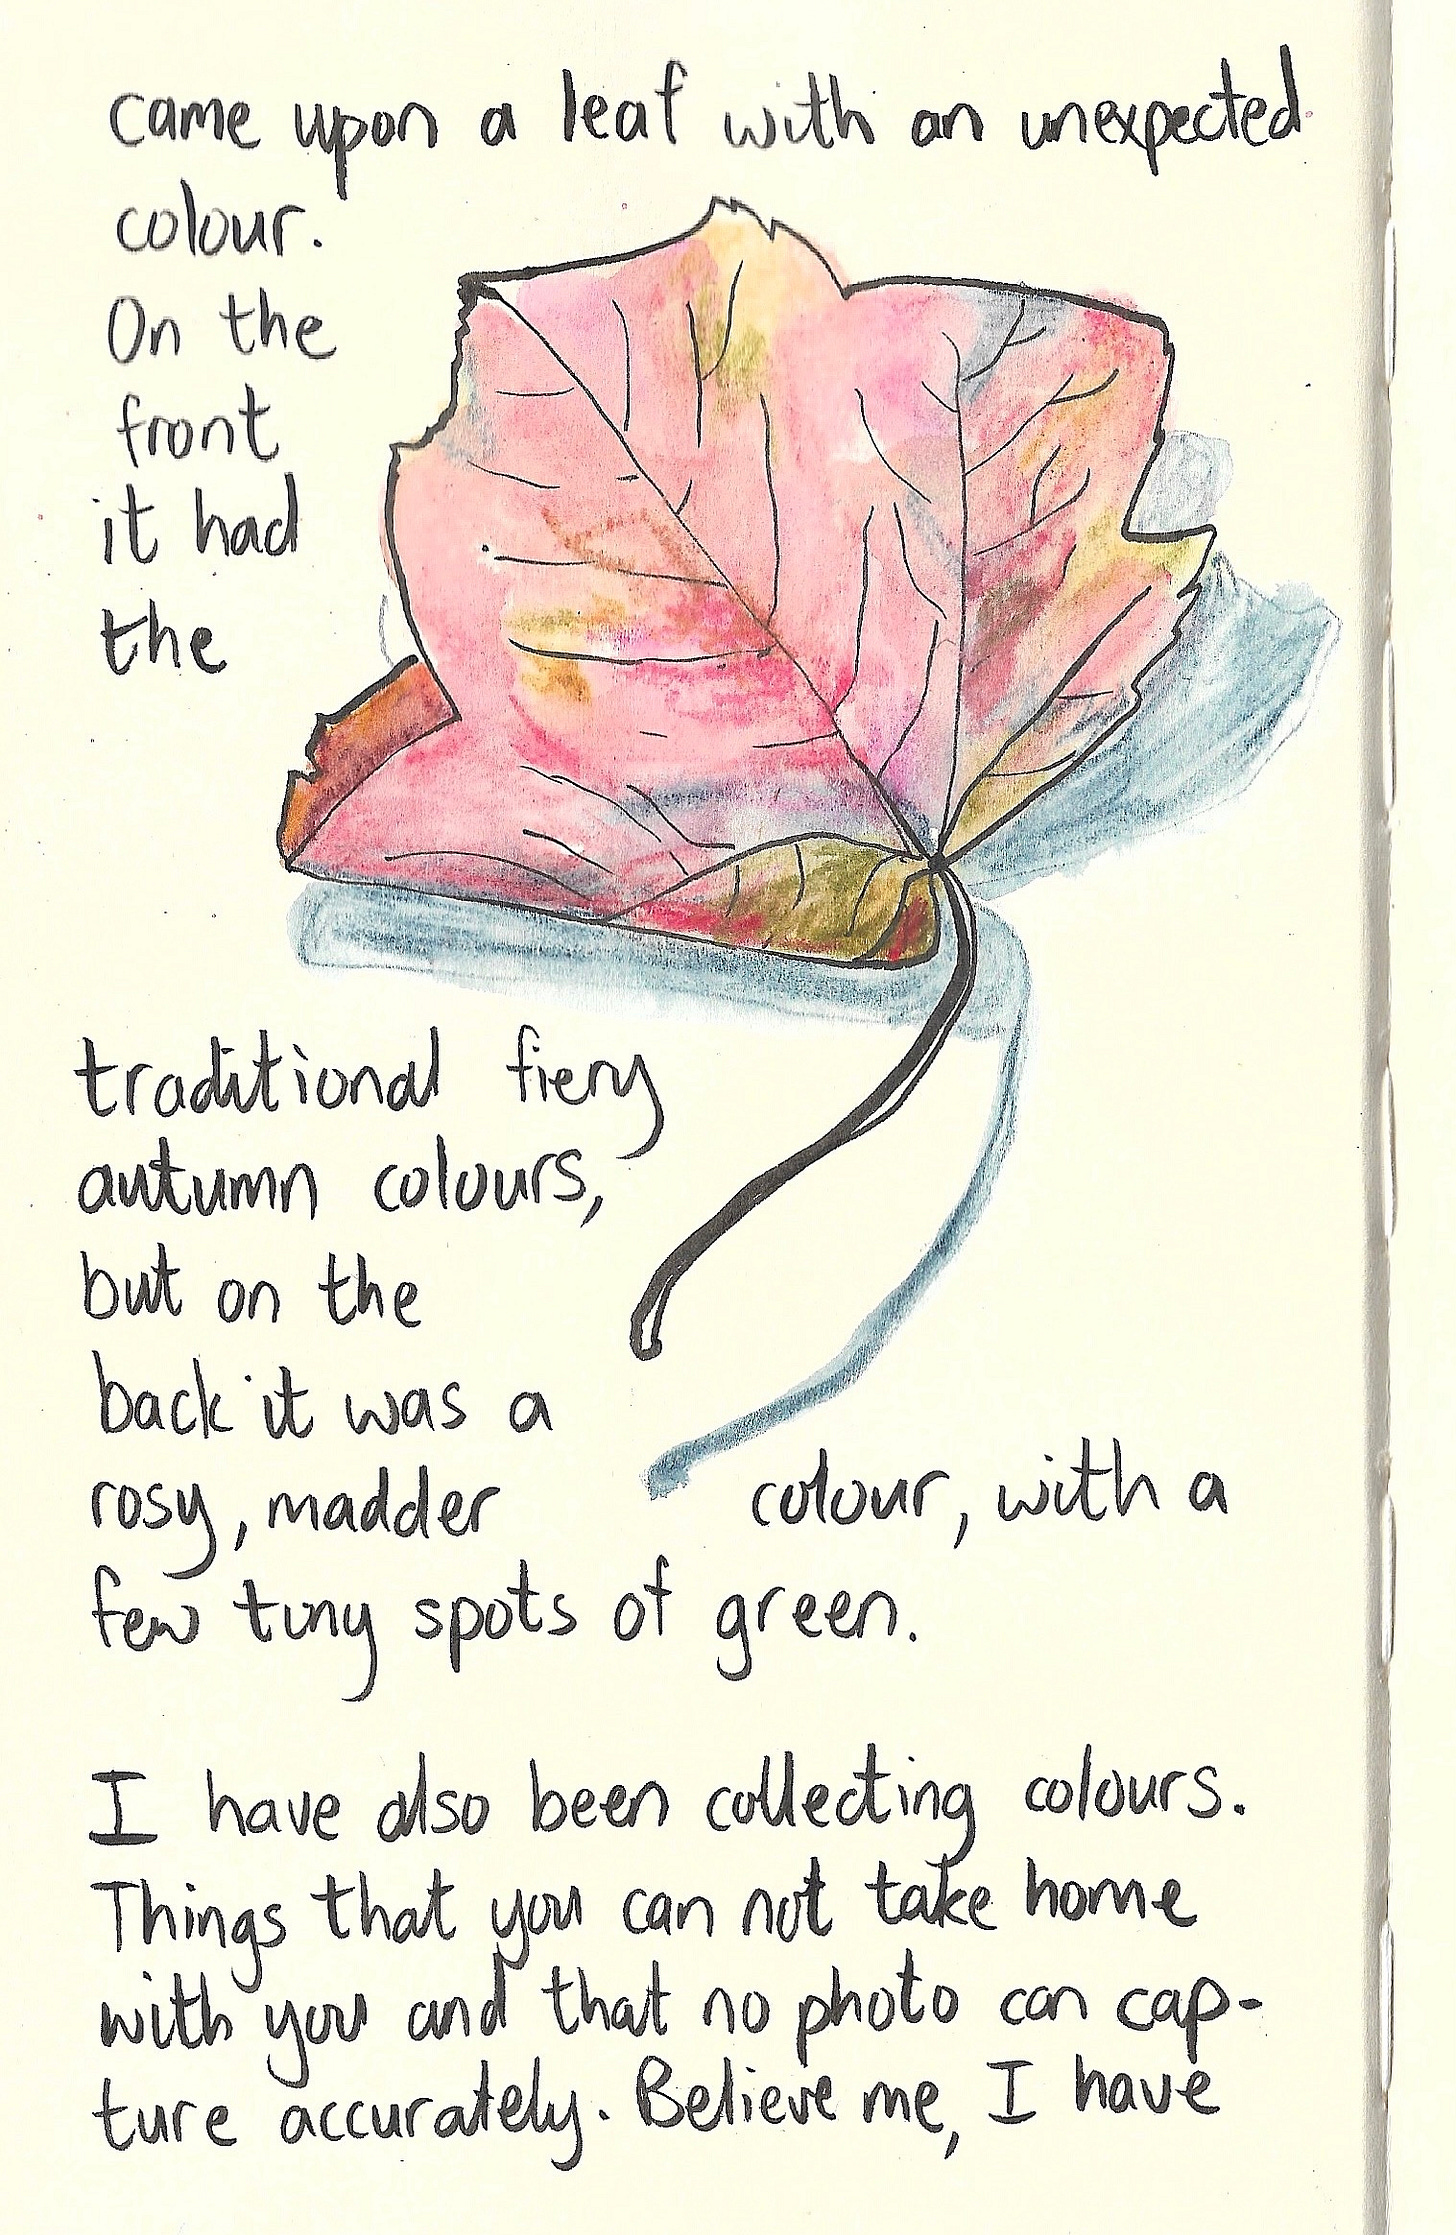 came upon a leaf with an unexpected
colour.
On the
front
it had
the
traditional fiery
autumn colours,
but on the
back it was a
rosy, madder colour, with a
few tiny spots of green.
I have also been collecting colours.
Things that you can not take home
with you and that no photo can cap-
ture accurately. Believe me, I have